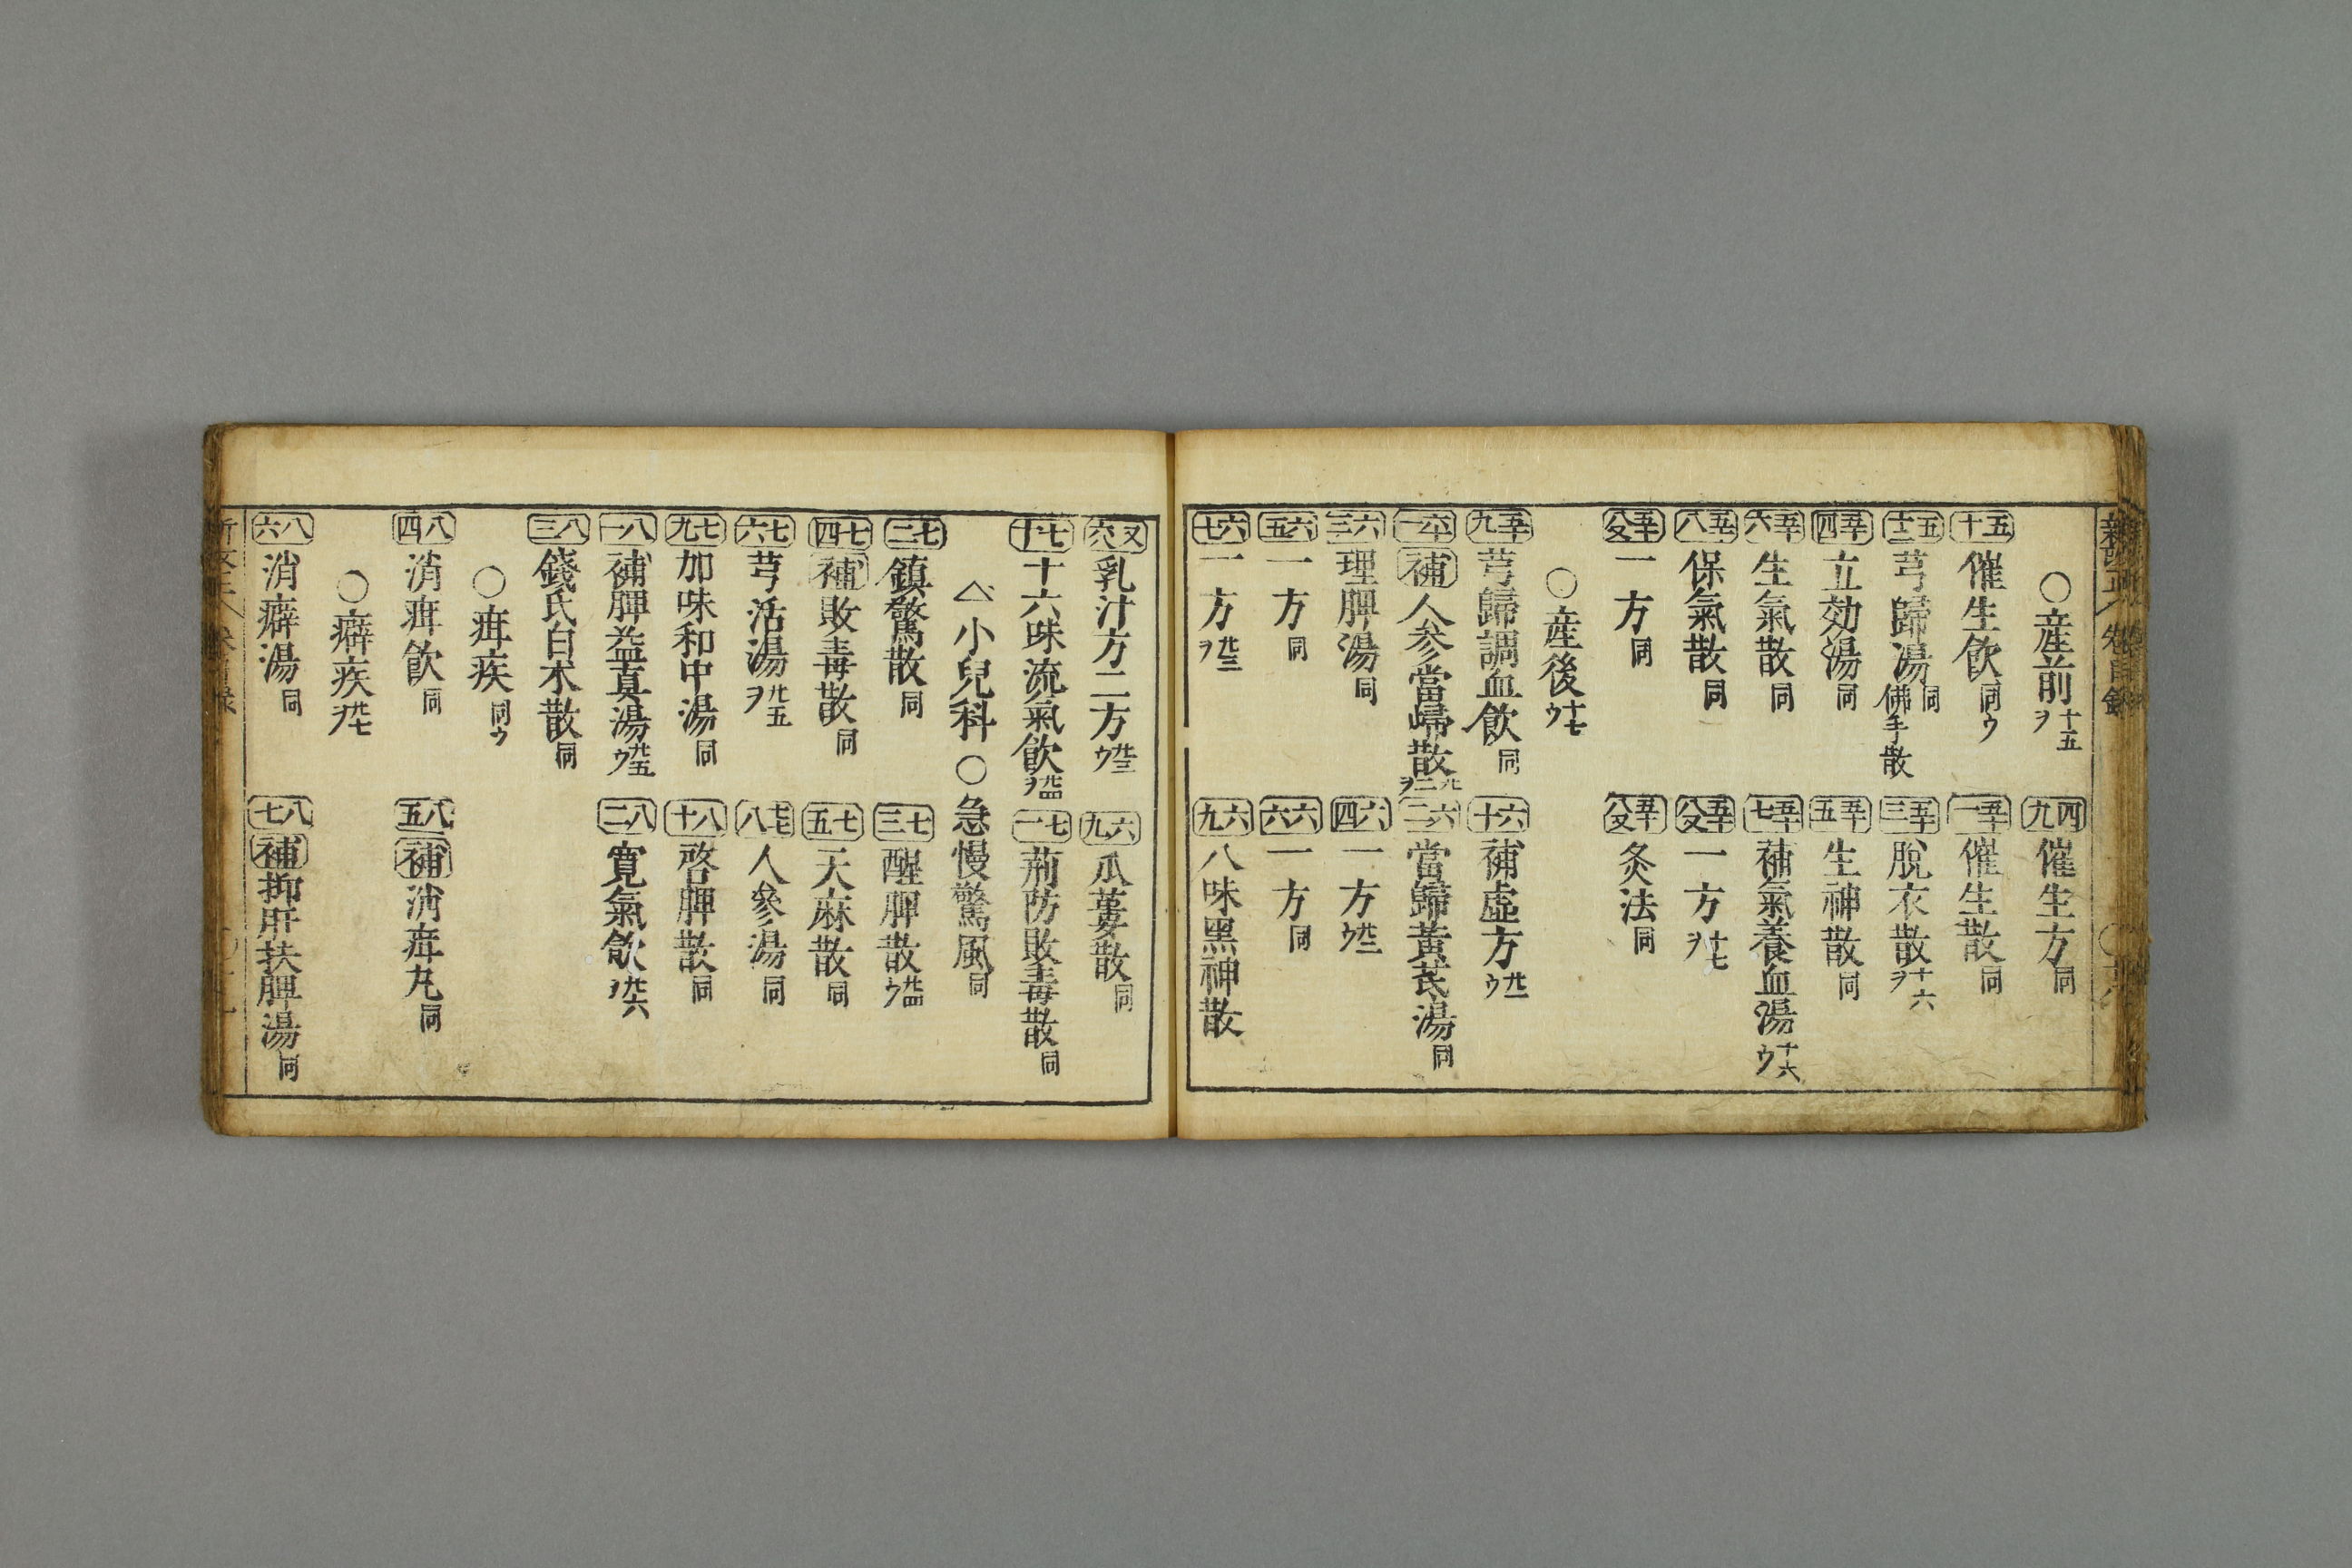 ○産前 十五ヲ
四九 催生方 同
五十 催生飲 同ウ
五十一 催生散 同
五十二 芎歸湯 同 佛手散
五十三 脱衣散 十六ヲ
五十四 立効湯 同
五十五 生神散 同
五十六 生氣散 同
五十七 補氣養血湯 十六ウ
五十八 保氣散 同
五十八又 一方 十七ヲ
五十八又 一方 同
五十八又 灸法 同
○産後 十七ウ
五十九 芎歸調血飲 同
六十 補虚方 廿一ウ
六十一 補 人參當歸散 廿二ヲ
六二 當歸黄芪湯 同
六三 理脾湯 同
六四 一方 廿二ウ
六五 一方 同
六六 一方 同
六七 一方 廿三ヲ
六九 八味黒神散
又六 乳汁方二方 廿三ウ
六九 瓜蔞散 同
七十 十六味流氣飲 廿四ヲ
七一 荊防敗毒散 同
小兒科 ○急慢驚風 同
七二 鎮驚散 同
七三 醒脾散 廿四ウ
七四 補 敗毒散 同
七五 天麻散 同
七六 芎活湯 廿五ヲ
七八 人參湯 同
七九 加味和中湯 同
八十 啓脾散 同
八一 補脾益真湯 廿五ウ
八二 寛氣飲 廿六ヲ
八三 錢氏白朮散 同
○疳疾 同ウ
八四 消疳飲 同
八五 補 消疳丸 同
○癖疾 廿七ヲ
八六 消癖湯 同
八七 補 抑肝扶脾湯 同